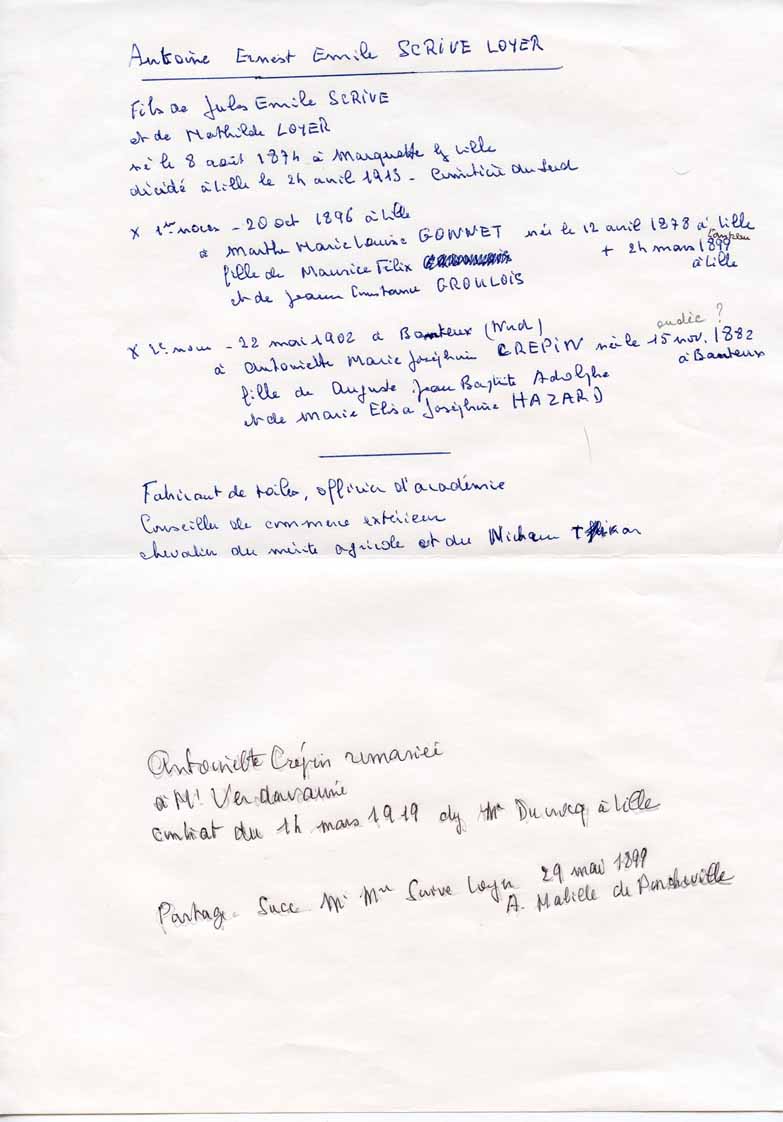 Antoine Ernest Emile SCRIVE LOYER
Fils de Jules Emile SCRIVE
et de Mathilde LOYER
né le 8 août 1874 à Marquette lez Lille
décédé à Lille le 24 avril 1915 - Cimetière du Sud
x 1er noces - 20 oct 1896 à Lille
à Marthe Marie Louise GONNET née le 12 avril 1878 à Lille
fille de Maurice Félix + 24 mars 1899
et de Jeanne Constance GROULOIS à Lille
ou déc ?
x 2e noces - 22 mai 1902 à Banteux (Nord)
à Antoinette Marie Joséphine CREPIN née le 15 nov. 1882
fille de Auguste Jean Baptiste Adolphe à Banteux
et de Marie Elisa Joséphine HAZARD
Fabricant de toiles, officier d'académie
Conseiller de commerce extérieur
chevalier du mérite agricole et du Nicham
Antoinette Crépin remariée
à Mr Verdavainne
contrat du 14 mars 1919 chez Me Ducrocq à Lille
Partage Succ Mr Mme Scrive Loyer 29 mai 1899
A. Mabille de Poncheville